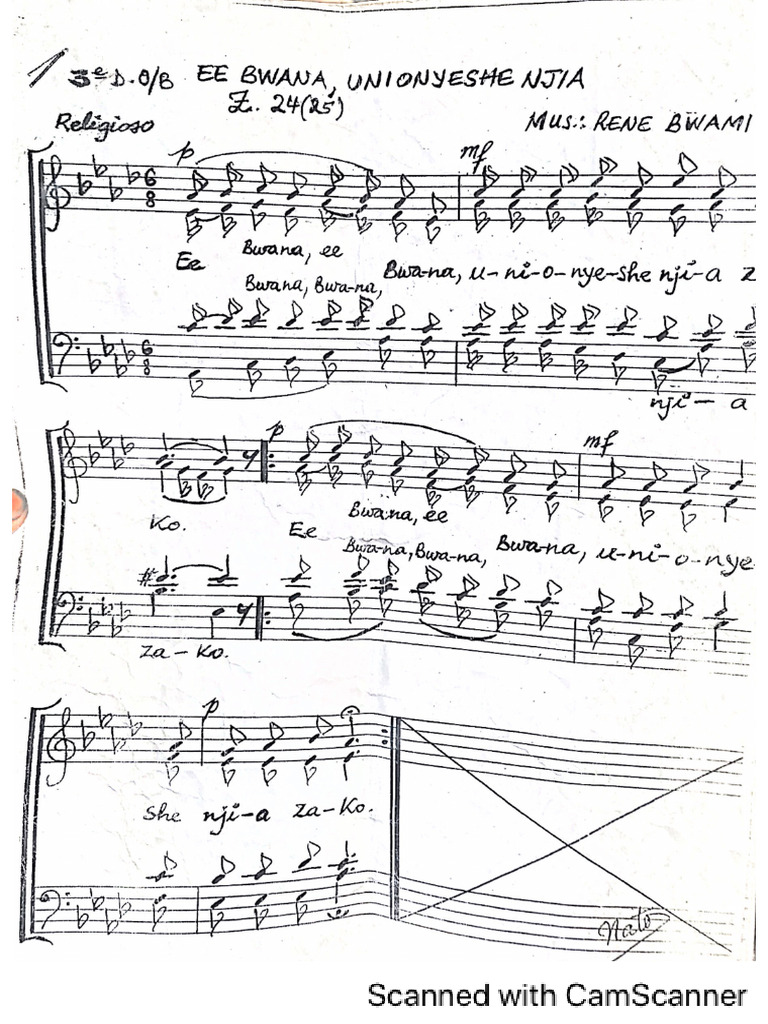 1 3e D. O/B EE BWANA, UNIONYESHE NJIA
Z. 24(25)
Religioso MUS.: RENE BWAMI
p mf
6 8
Ee Bwana, ee
Bwana, Bwa-na, Bwa-na, u-ni-o-nye-she nji-a z
6 8
nji-a
p mf
Ko. Ee Bwa-na, ee
Bwa-na, Bwa-na, Bwa-na, u-ni-o-nye
za-Ko.
p
she nji-a za-Ko.
Nato
Scanned with CamScanner